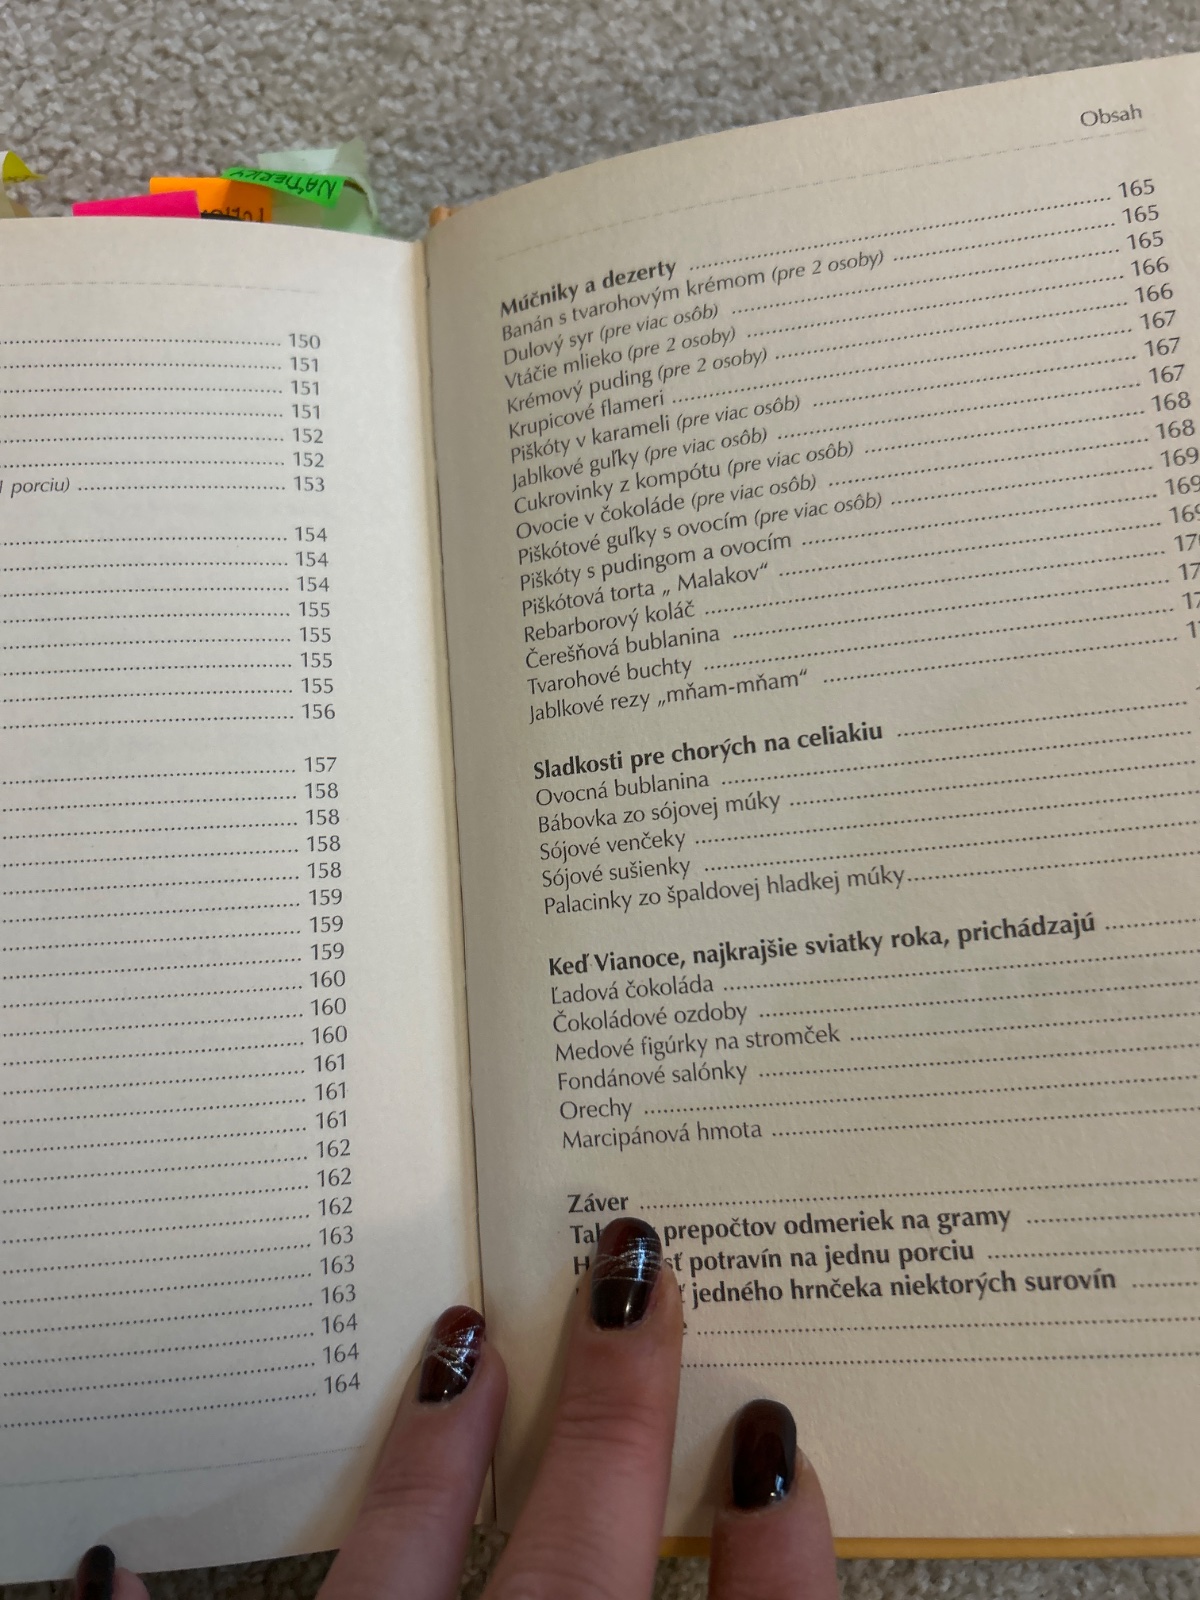 NÁTIERKY
150
151
151
151
152
152
porciu) 153
154
154
154
155
155
155
155
156
157
158
158
158
158
159
159
159
160
160
160
161
161
161
162
162
162
163
163
163
164
164
164
Obsah
Múčniky a dezerty 165
Banán s tvarohovým krémom (pre 2 osoby) 165
Dulový syr (pre viac osôb) 165
Vtáčie mlieko (pre 2 osoby) 166
Krémový puding (pre 2 osoby) 166
Krupicové flameri 167
Piškóty v karameli (pre viac osôb) 167
Jablkové guľky (pre viac osôb) 167
Cukrovinky z kompótu (pre viac osôb) 168
Ovocie v čokoláde (pre viac osôb) 168
Piškótové guľky s ovocím (pre viac osôb) 169
Piškóty s pudingom a ovocím 169
Piškótová torta „ Malakov“ 169
Rebarborový koláč
Čerešňová bublanina
Tvarohové buchty
Jablkové rezy „mňam-mňam“
Sladkosti pre chorých na celiakiu
Ovocná bublanina
Bábovka zo sójovej múky
Sójové venčeky
Sójové sušienky
Palacinky zo špaldovej hladkej múky
Keď Vianoce, najkrajšie sviatky roka, prichádzajú
Ľadová čokoláda
Čokoládové ozdoby
Medové figúrky na stromček
Fondánové salónky
Orechy
Marcipánová hmota
Záver
prepočtov odmeriek na gramy
potravín na jednu porciu
jedného hrnčeka niektorých surovín